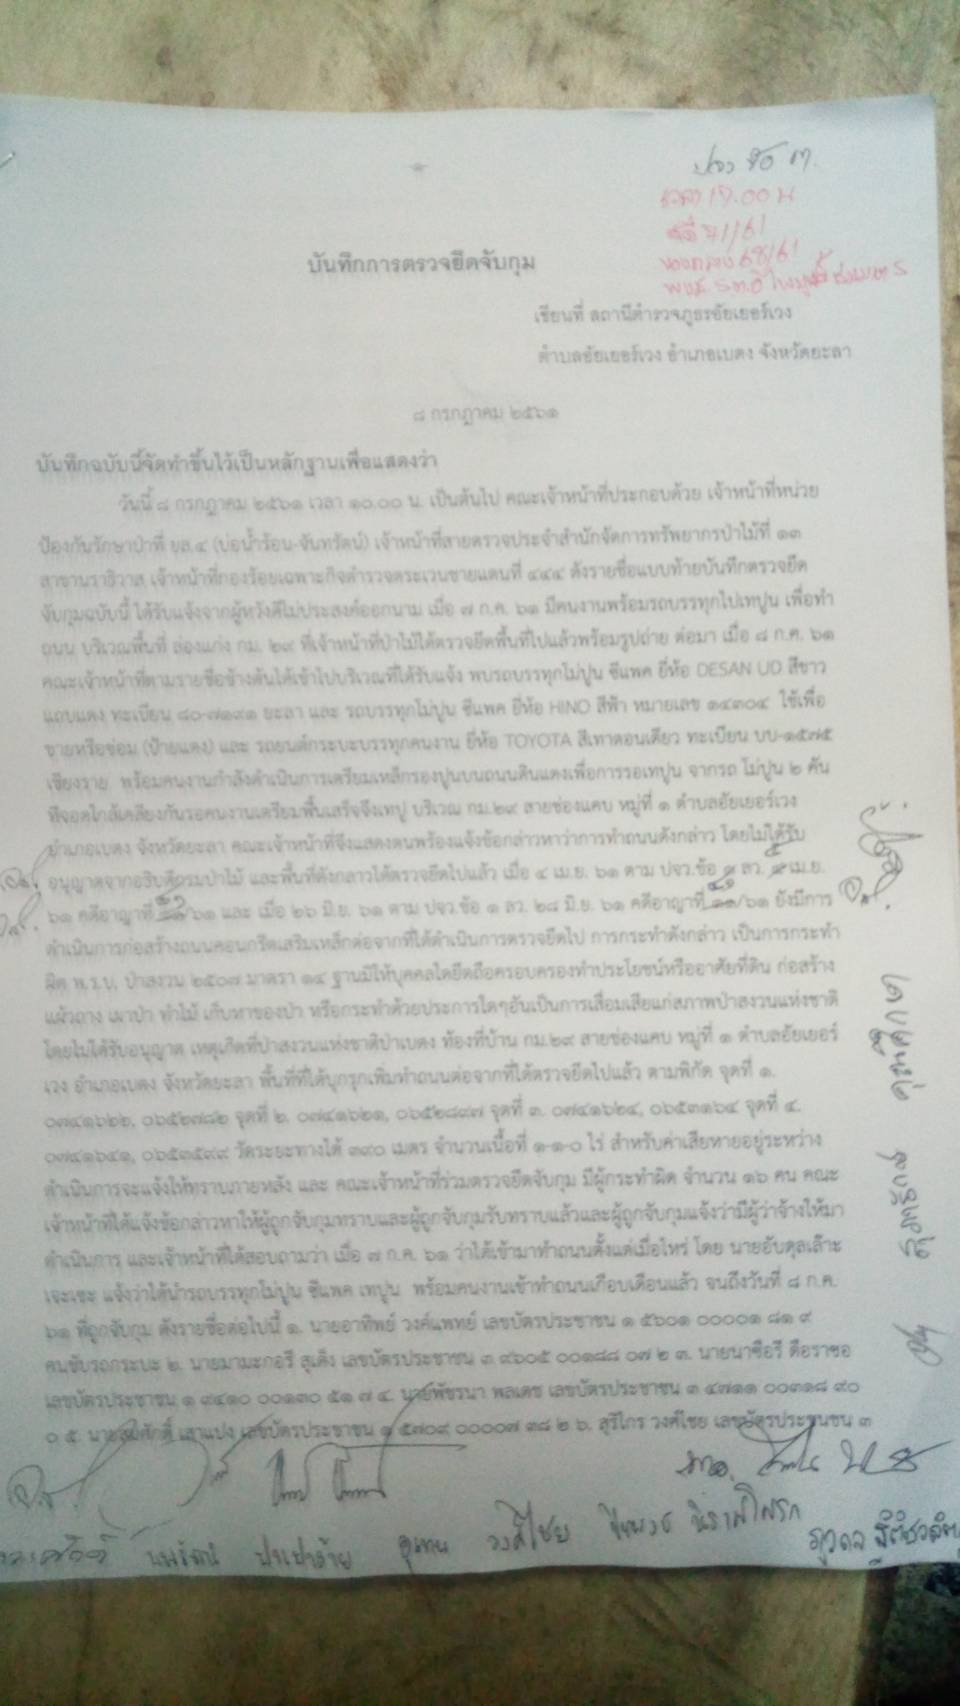 ปจว ข้อ ๗.
เวลา 17.00 น
คดี 71/61
ของกลาง 68/61
พงส. ร.ต.อ
บันทึกการตรวจยึดจับกุม
เขียนที่ สถานีตำรวจภูธรอัยเยอร์เวง
ตำบลอัยเยอร์เวง อำเภอเบตง จังหวัดยะลา
๘ กรกฎาคม ๒๕๖๑
บันทึกฉบับนี้จัดทำขึ้นไว้เป็นหลักฐานเพื่อแสดงว่า
วันนี้ ๘ กรกฎาคม ๒๕๖๑ เวลา ๑๐.๐๐ น. เป็นต้นไป คณะเจ้าหน้าที่ประกอบด้วย เจ้าหน้าที่หน่วย
ป้องกันรักษาป่าที่ ยล.๔ (บ่อน้ำร้อน-จันทรัตน์) เจ้าหน้าที่สายตรวจประจำสำนักจัดการทรัพยากรป่าไม้ที่ ๑๓
สาขานราธิวาส เจ้าหน้าที่กองร้อยเฉพาะกิจตำรวจตระเวนชายแดนที่ ๔๔๔ ดังรายชื่อแนบท้ายบันทึกตรวจยึด
จับกุมฉบับนี้ ได้รับแจ้งจากผู้หวังดีไม่ประสงค์ออกนาม เมื่อ ๗ ก.ค. ๖๑ มีคนงานพร้อมรถบรรทุกไปเทปูน เพื่อทำ
ถนน บริเวณพื้นที่ ล่องแก่ง กม. ๒๙ ที่เจ้าหน้าที่ป่าไม้ได้ตรวจยึดพื้นที่ไปแล้วพร้อมรูปถ่าย ต่อมา เมื่อ ๘ ก.ค. ๖๑
คณะเจ้าหน้าที่ตามรายชื่อข้างต้นได้เข้าไปบริเวณที่ได้รับแจ้ง พบรถบรรทุกโม่ปูน ซีแพค ยี่ห้อ DESAN UD สีขาว
แถบแดง ทะเบียน ๘๐-๗๑๙๑ ยะลา และ รถบรรทุกโม่ปูน ซีแพค ยี่ห้อ HINO สีฟ้า หมายเลข ๑๔๓๐๔ ใช้เพื่อ
ขายหรือซ่อม (ป้ายแดง) และ รถยนต์กระบะบรรทุกคนงาน ยี่ห้อ TOYOTA สีเทาตอนเดียว ทะเบียน บบ-๑๕๗๕
เชียงราย พร้อมคนงานกำลังดำเนินการเตรียมเหล็กรองปูนบนถนนดินแดงเพื่อการรอเทปูน จากรถ โม่ปูน ๒ คัน
ที่จอดใกล้เคียงกันรอคนงานเตรียมพื้นเสร็จจึงเทปู บริเวณ กม.๒๙ สายช่องแคบ หมู่ที่ ๑ ตำบลอัยเยอร์เวง
อำเภอเบตง จังหวัดยะลา คณะเจ้าหน้าที่จึงแสดงตนพร้องแจ้งข้อกล่าวหาว่าการทำถนนดังกล่าว โดยไม่ได้รับ
อนุญาตจากอธิบดีกรมป่าไม้ และพื้นที่ดังกล่าวได้ตรวจยึดไปแล้ว เมื่อ ๔ เม.ย. ๖๑ ตาม ปจว.ข้อ ลว. ๕ เม.ย.
๖๑ คดีอาญาที่ /๖๑ และ เมื่อ ๒๖ มิ.ย. ๖๑ ตาม ปจว.ข้อ ๑ ลว. ๒๘ มิ.ย. ๖๑ คดีอาญาที่ /๖๑ ยังมีการ
ดำเนินการก่อสร้างถนนคอนกรีตเสริมเหล็กต่อจากที่ได้ดำเนินการตรวจยึดไป การกระทำดังกล่าว เป็นการกระทำ
ผิด พ.ร.บ. ป่าสงวน ๒๕๐๗ มาตรา ๑๔ ฐานมิให้บุคคลใดยึดถือครอบครองทำประโยชน์หรืออาศัยที่ดิน ก่อสร้าง
แผ้วถาง เผาป่า ทำไม้ เก็บหาของป่า หรือกระทำด้วยประการใดๆอันเป็นการเสื่อมเสียแก่สภาพป่าสงวนแห่งชาติ
โดยไม่ได้รับอนุญาต เหตุเกิดที่ป่าสงวนแห่งชาติป่าเบตง ท้องที่บ้าน กม.๒๙ สายช่องแคบ หมู่ที่ ๑ ตำบลอัยเยอร์
เวง อำเภอเบตง จังหวัดยะลา พื้นที่ที่ได้บุกรุกเพิ่มทำถนนต่อจากที่ได้ตรวจยึดไปแล้ว ตามพิกัด จุดที่ ๑.
๐๗๔๑๖๒๒, ๐๖๕๒๗๘๒ จุดที่ ๒. ๐๗๔๑๖๒๑, ๐๖๕๒๘๙๗ จุดที่ ๓. ๐๗๔๑๖๒๔, ๐๖๕๓๑๖๔ จุดที่ ๔.
๐๗๔๑๖๔๑, ๐๖๕๓๕๙๙ วัดระยะทางได้ ๓๙๐ เมตร จำนวนเนื้อที่ ๑-๑-๐ ไร่ สำหรับค่าเสียหายอยู่ระหว่าง
ดำเนินการจะแจ้งให้ทราบภายหลัง และ คณะเจ้าหน้าที่ร่วมตรวจยึดจับกุม มีผู้กระทำผิด จำนวน ๑๖ คน คณะ
เจ้าหน้าที่ได้แจ้งข้อกล่าวหาให้ผู้ถูกจับกุมทราบและผู้ถูกจับกุมรับทราบแล้วและผู้ถูกจับกุมแจ้งว่ามีผู้ว่าจ้างให้มา
ดำเนินการ และเจ้าหน้าที่ได้สอบถามว่า เมื่อ ๗ ก.ค. ๖๑ ว่าได้เข้ามาทำถนนตั้งแต่เมื่อไหร่ โดย นายอับดุลเล๊าะ
เจะเซะ แจ้งว่าได้นำรถบรรทุกโม่ปูน ซีแพค เทปูน พร้อมคนงานเข้าทำถนนเกือบเดือนแล้ว จนถึงวันที่ ๘ ก.ค.
๖๑ ที่ถูกจับกุม ดังรายชื่อต่อไปนี้ ๑. นายอาทิพย์ วงค์แพทย์ เลขบัตรประชาชน ๑ ๕๖๐๑ ๐๐๐๐๑ ๘๑ ๙
คนขับรถกระบะ ๒. นายมามะกอรี สูเด็ง เลขบัตรประชาชน ๓ ๙๖๐๕ ๐๐๑๘๘ ๐๗ ๒ ๓. นายนาซือรี ดือราซอ
เลขบัตรประชาชน ๑ ๙๔๑๐ ๐๐๑๓๐ ๕๑ ๗ ๔. นายพัชรนา พลเดช เลขบัตรประชาชน ๓ ๔๗๑๑ ๐๐๓๑๘ ๙๐
๐ ๕. นายสมศักดิ์ เลาแปง เลขบัตรประชาชน ๑ ๕๗๐๙ ๐๐๐๐๗ ๓๘ ๒ ๖. สุริไกร วงค์ไชย เลขบัตรประชุนชน ๓
นพรัตน์ อุเทน วงค์ไชย